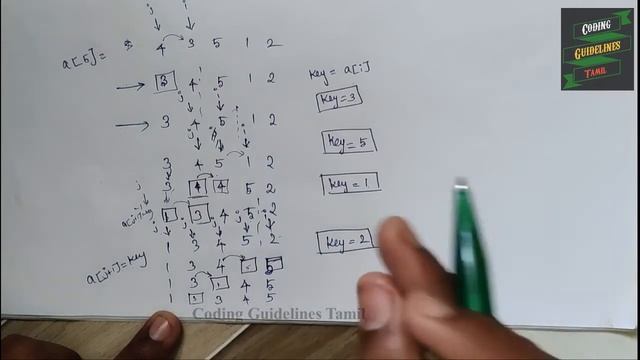 j i
a[5] = 4 3 5 1 2
3 4 5 1 2
3 4 5 1 2
3 4 5 1 2
j 3 4 4 5 2
1 3 4 5 2
1 3 4 5 2
a[j+1]=key 1 3 4 5
1 3 4 5
1 3 4 5
key = a[i]
key = 3
key = 5
key = 1
key = 2
CODING
GUIDELINES
TAMIL
Coding Guidelines Tamil